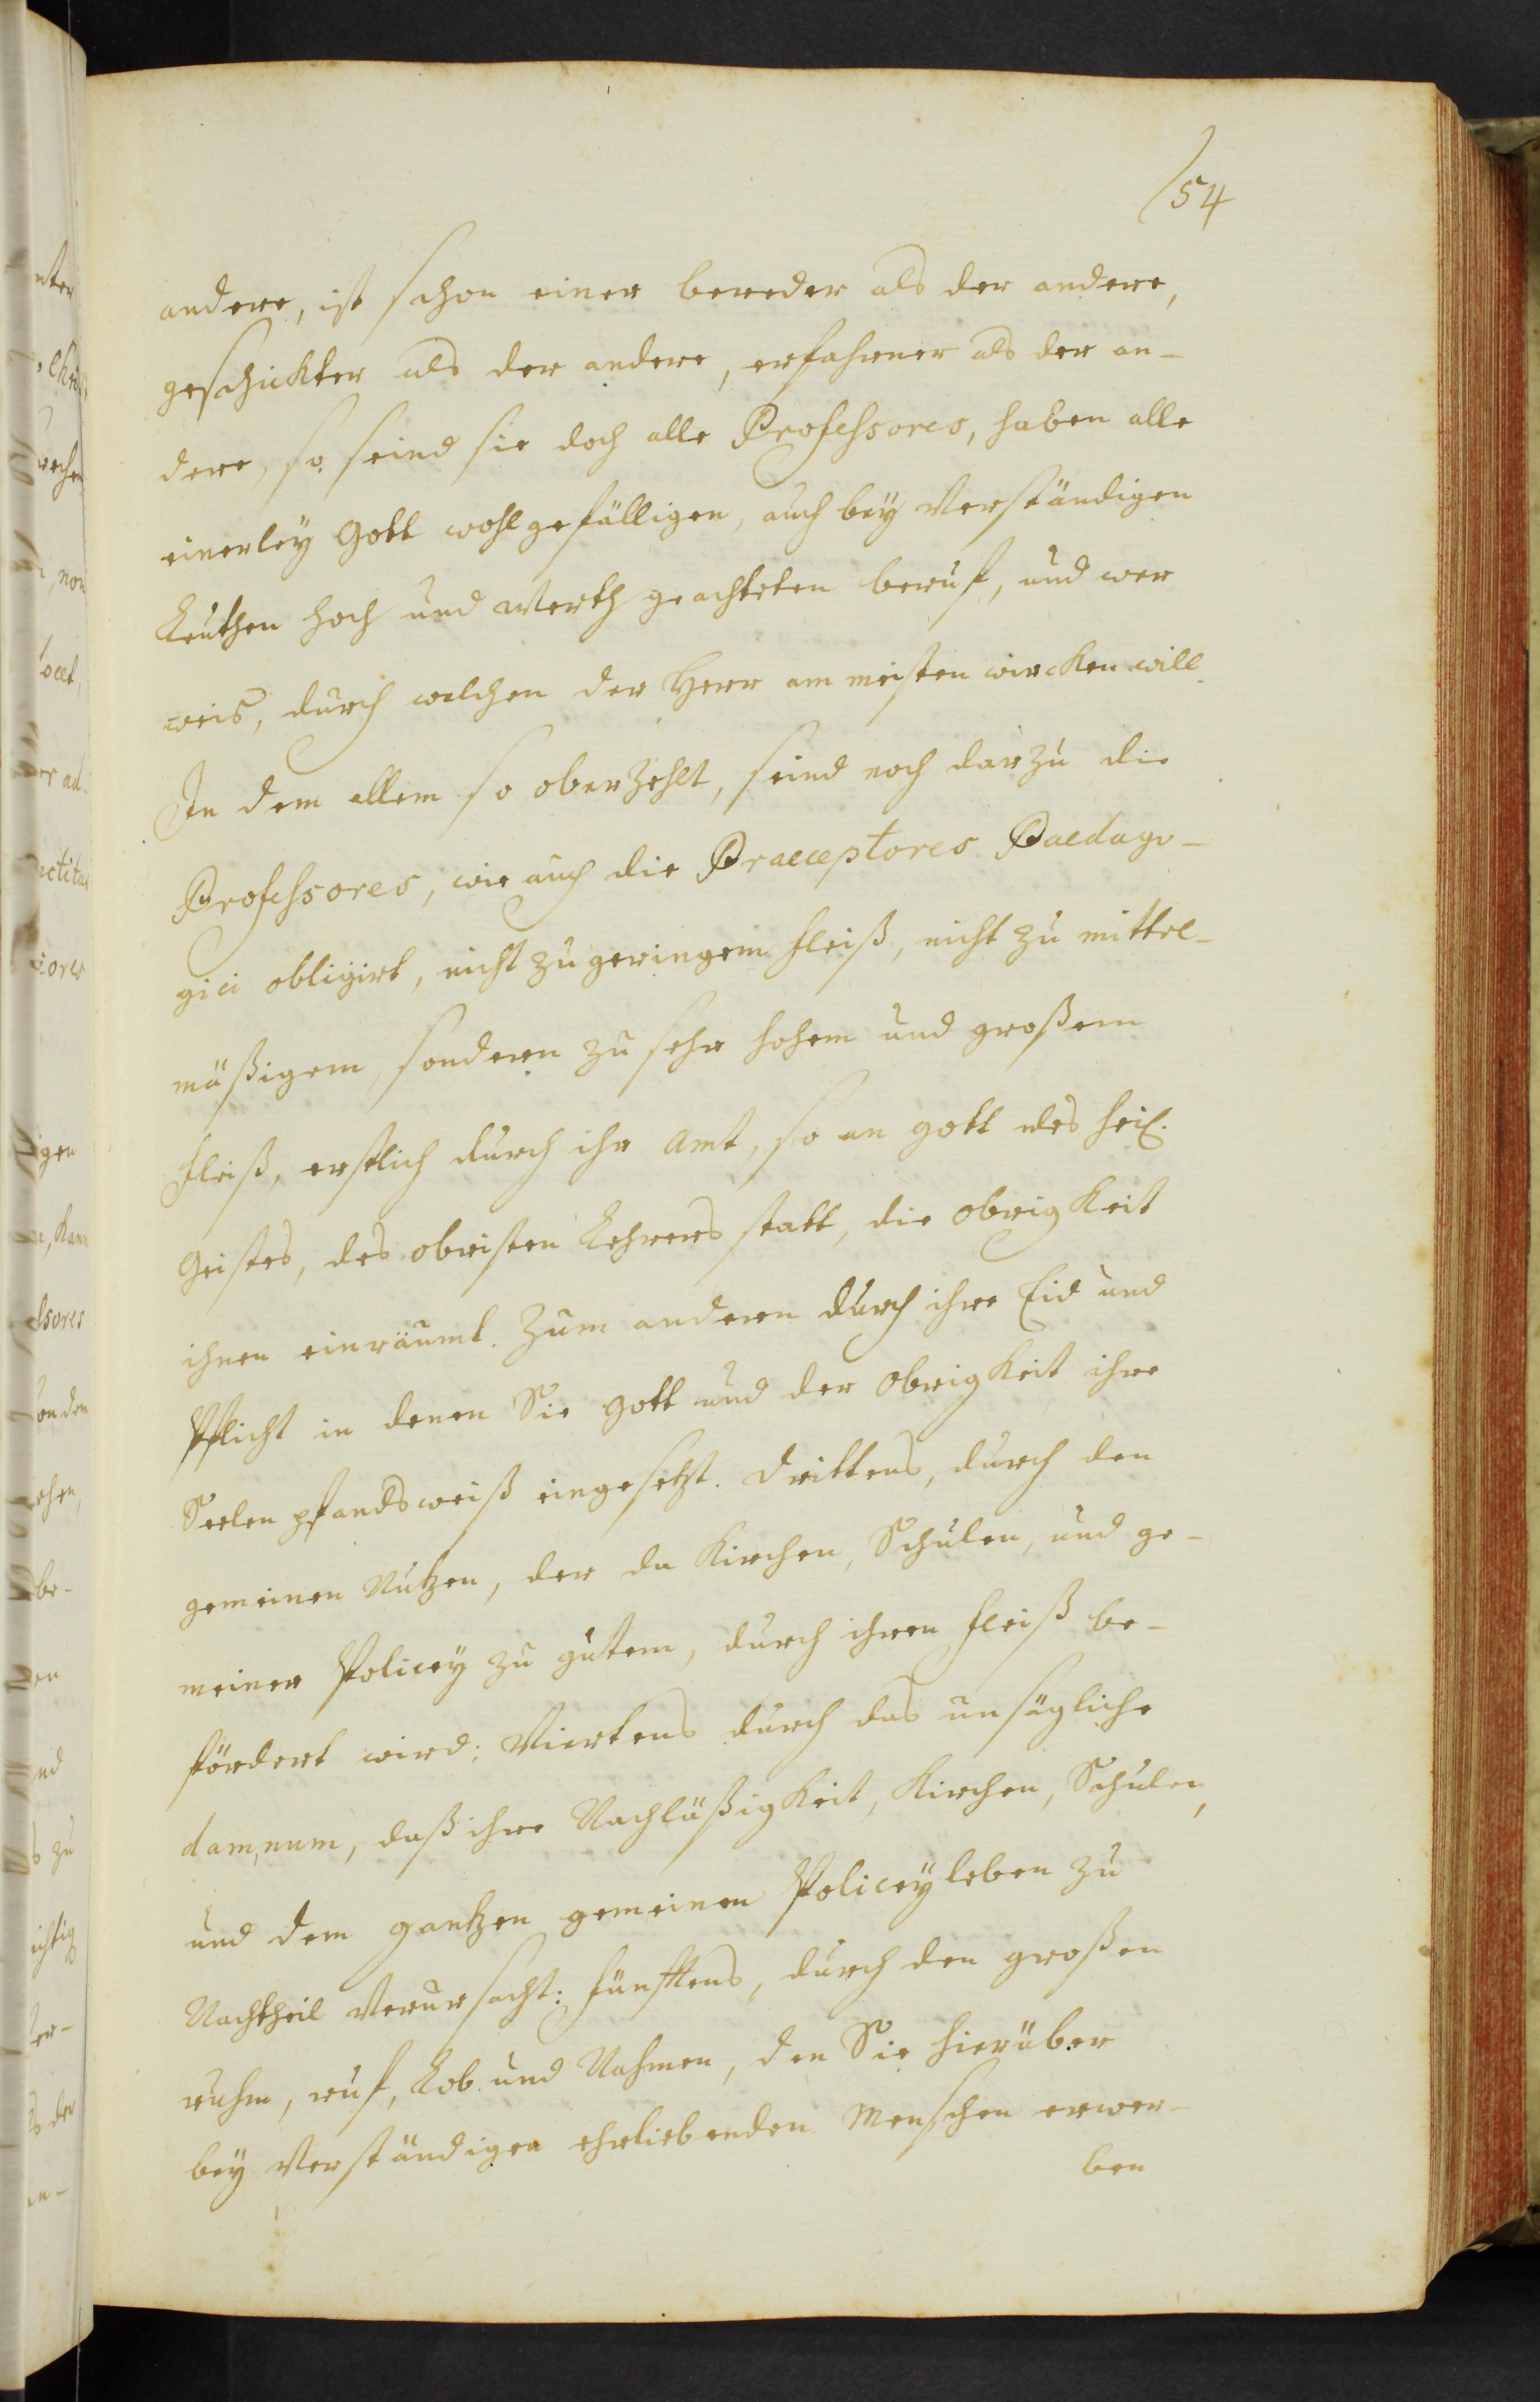 54
andere, ist schon einer bereder als der andere,
geschickter als der andere, erfahrner als der an-
dere, so seind sie doch alle Professores, haben alle
einerley Gott wohlgefälligen, auch bey Verständigen
Leuthen hoch und Werth geachteten beruf, und wer
weis, durch welchen der Herr am meisten wircken will.
In dem allem so oberzehlt, seind noch darzu die
Professores, wie auch die Praeceptores Paedago-
gici obligirt, nicht zu geringem fleiß, nicht zu mittel-
mäßigem, sondern zu sehr hohem und großem
fleiß, erstlich durch ihr Amt, so an gott des heil.
Geistes, des obristen Lehrers statt, die obrigkeit
ihnen einräumt. Zum anderen durch ihre Eid und
Pflicht in denen Sie gott und der Obrigkeit ihre
Seelen pfandsweiß eingesetzt. Drittens, durch den
gemeinen Nutzen, der da Kirchen, Schulen, und ge-
meiner Policey zu gutem, durch ihren fleiß be-
fördert wird; Viertens durch das unsägliche
damnum, daß ihre Nachläßigkeit, Kirchen, Schulen,
und dem gantzen gemeinen Policeyleben zu
Nachtheil Verursacht: fünfftens, durch den großen
ruhm, ruf, Lob und Nahmen, den Sie hierüber
bey Verständigen ehrliebenden Menschen erwer-
ben